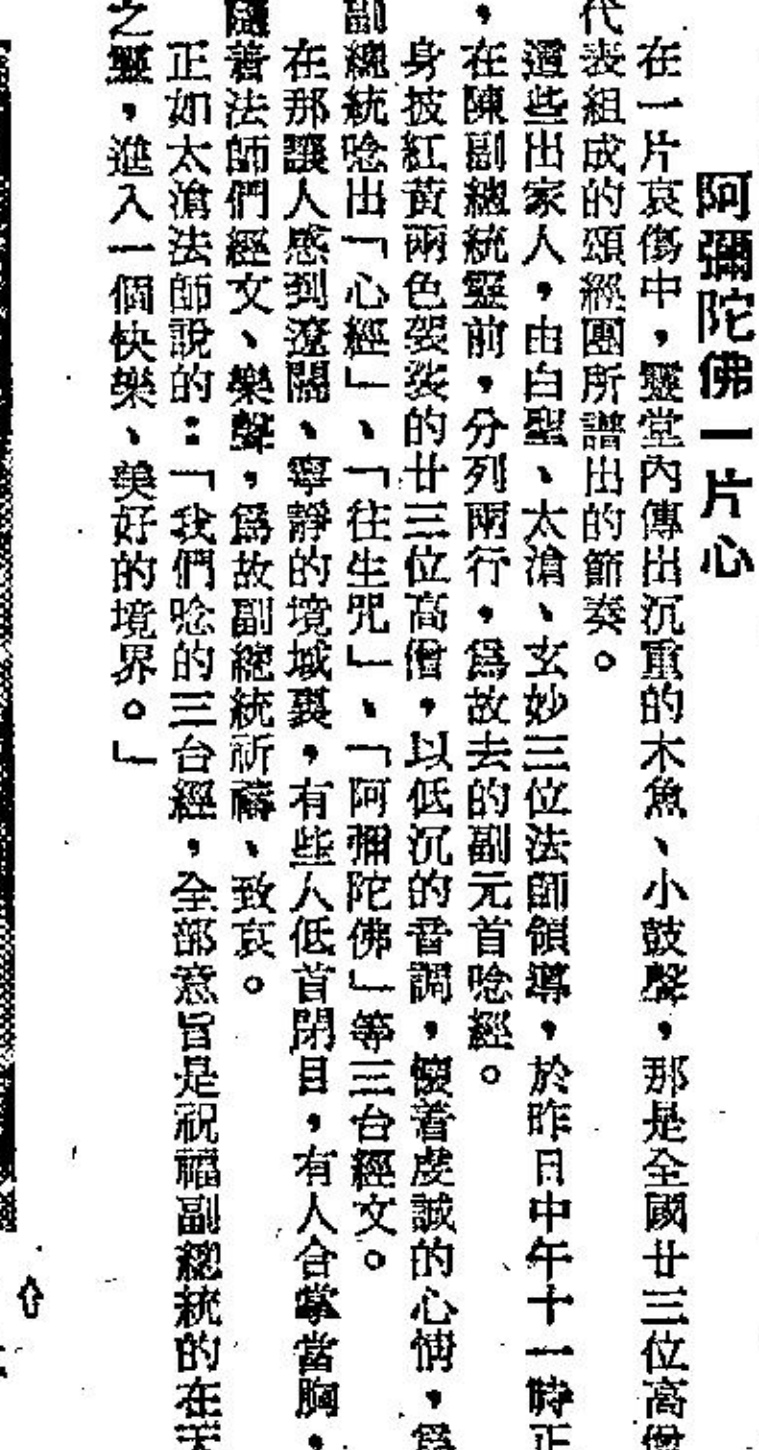 阿彌陀佛一片心
在一片哀傷中，靈堂內傳出沉重的木魚、小鼓聲，那是全國廿三位高僧
代表組成的頌經團所譜出的節奏。
這些出家人，由白聖、太滄、玄妙三位法師領導，於昨日中午十一時正
，在陳副總統靈前，分列兩行，爲故去的副元首唸經。
身披紅黃兩色袈裟的廿三位高僧，以低沉的音調，懷着虔誠的心情，爲
副總統唸出「心經」、「往生咒」、「阿彌陀佛」等三台經文。
在那讓人感到遼闊、寧靜的境域裏，有些人低首閉目，有人合掌當胸，
隨着法師們經文、樂聲，爲故副總統祈禱、致哀。
正如太滄法師說的：「我們唸的三台經，全部意旨是祝福副總統的在天
之靈，進入一個快樂、美好的境界。」